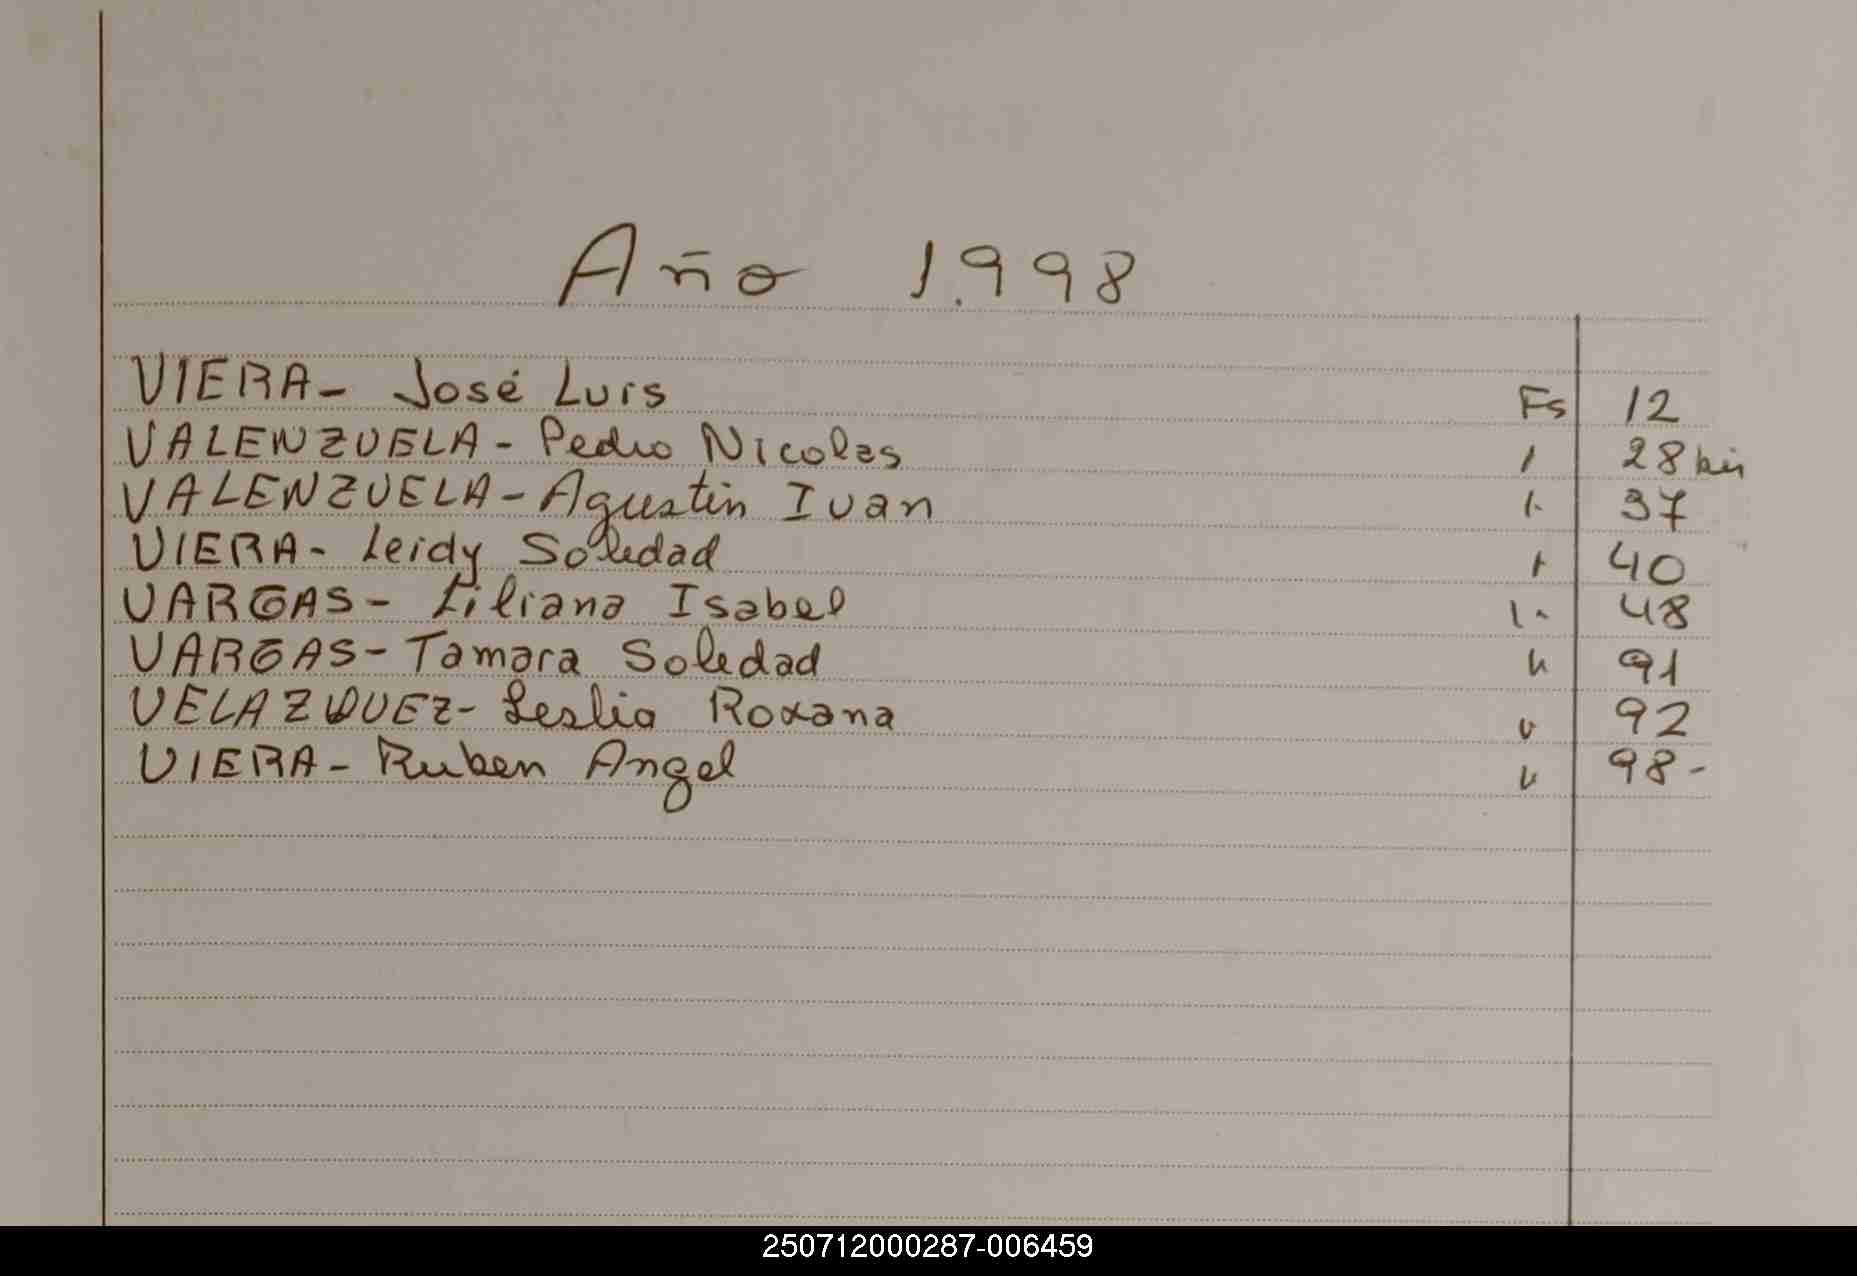 Año 1.998
VIERA- José Luis Fs 12
VALENZUELA- Pedro Nicolas " 28 bis
VALENZUELA- Agustin Ivan " 37
VIERA- Leidy Soledad " 40
VARGAS- Liliana Isabel " 48
VARGAS- Tamara Soledad " 91
VELAZQUEZ- Leslia Roxana " 92
VIERA- Ruben Angel " 98-
250712000287-006459